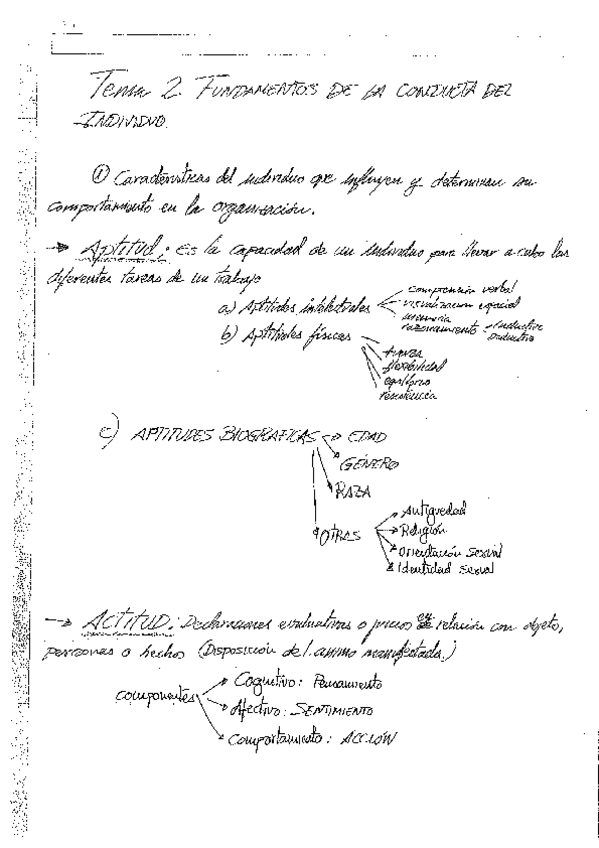 Tema 2. FUNDAMENTOS DE LA CONDUCTA DEL
INDIVIDUO.
① Características del individuo que influyen y determinan su
comportamiento en la organización.
→ Aptitud: Es la capacidad de un individuo para llevar a cabo las
diferentes tareas de un trabajo
a) Aptitudes intelectuales
comprensión verbal
visualización espacial
memoria
razonamiento inductivo
deductivo
b) Aptitudes físicas
fuerza
flexibilidad
equilibrio
resistencia
c) APTITUDES BIOGRAFICAS → EDAD
GÉNERO
RAZA
OTRAS
Antiguedad
Religión
Orientación Sexual
Identidad Sexual
→ ACTITUD: Declaraciones evaluativas o juicios relación con objeto,
personas o hechos (Disposición del animo manifestada.)
componentes
Cognitivo: Pensamiento
Afectivo: SENTIMIENTO
Comportamiento: ACCIÓN